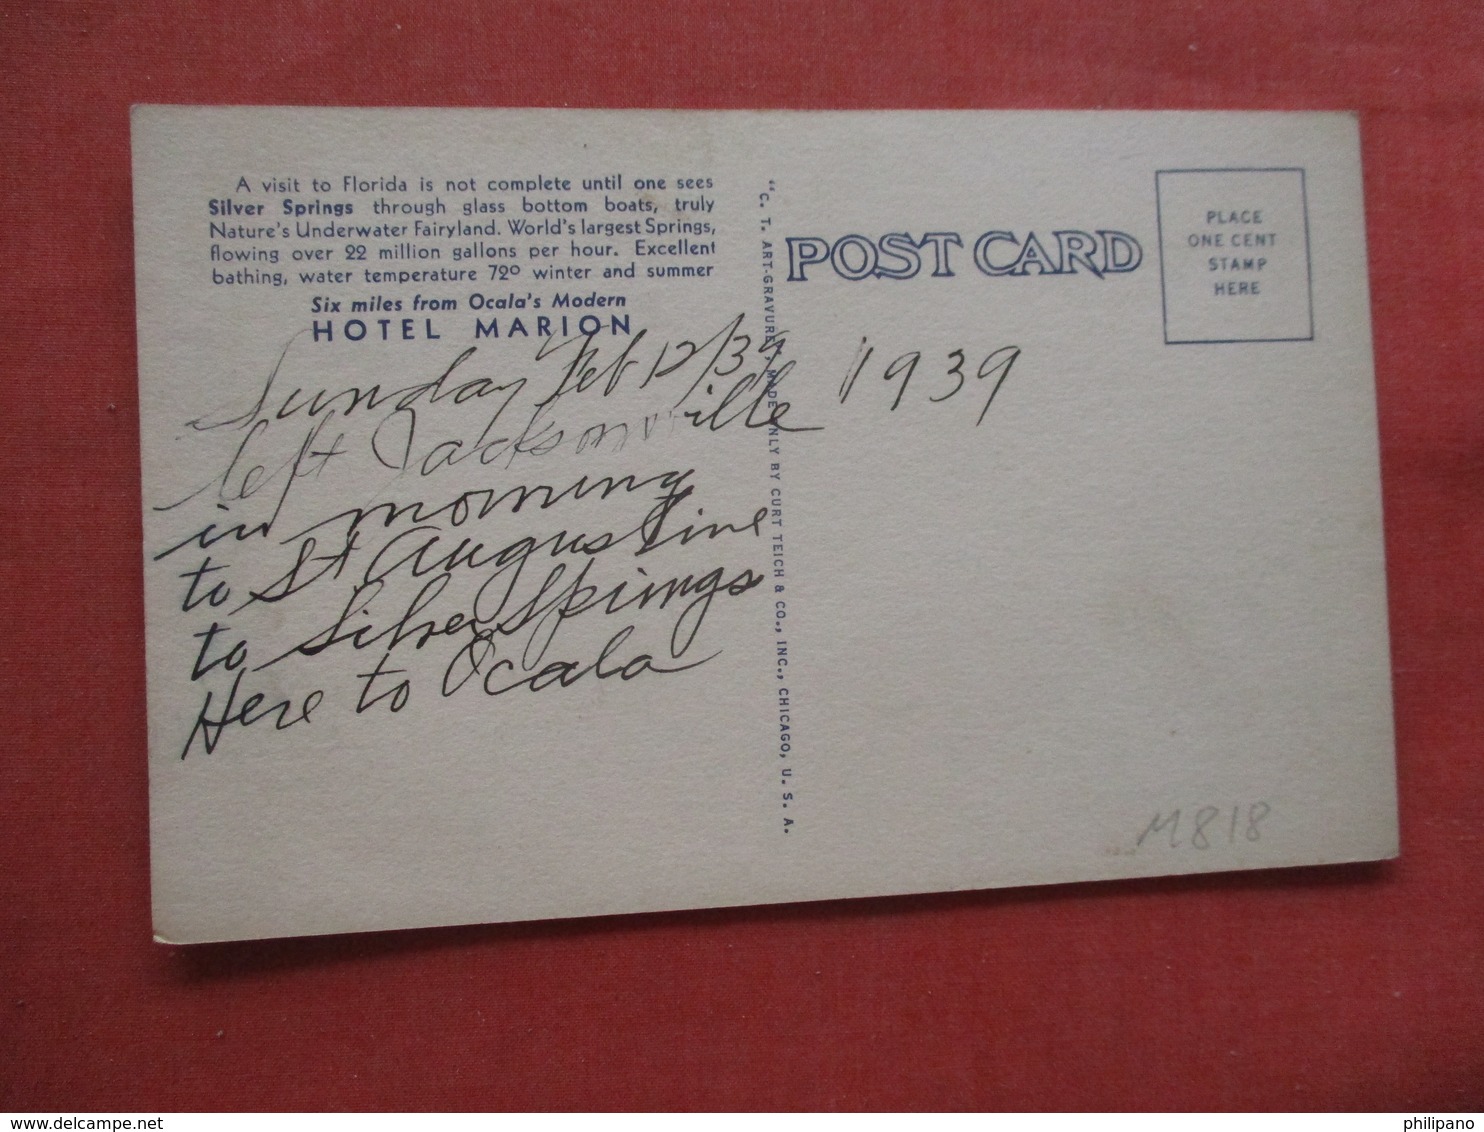 A visit to Florida is not complete until one sees
Silver Springs through glass bottom boats, truly
Nature's Underwater Fairyland. World's largest Springs,
flowing over 22 million gallons per hour. Excellent
bathing, water temperature 72º winter and summer
Six miles from Ocala's Modern
HOTEL MARION
Sunday Feb 12/39
left Jacksonville
in morning
to St Augustine
to Silver Springs
Here to Ocala
"C. T. ART-GRAVURE", MADE ONLY BY CURT TEICH & CO., INC., CHICAGO, U. S. A.
POST CARD
PLACE
ONE CENT
STAMP
HERE
1939
M818
www.delcampe.net
philipano